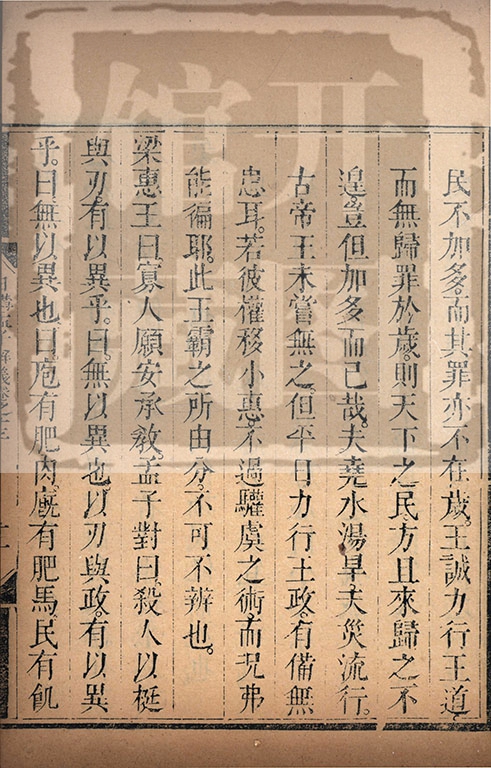 民不加多。而其罪亦不在歲。王誠力行王道。
而無歸罪於歲。則天下之民方且來歸之不
遑。豈但加多而已哉。夫堯水湯旱。天災流行。
古帝王未嘗無之。但平日力行王政。有備無
患耳。若彼權移小惠。不過驩虞之術。而況弗
能徧耶。此王霸之所由分。不可不辨也。
梁惠王曰。寡人願安承教。孟子對曰。殺人以梃
與刃。有以異乎。曰。無以異也。以刃與政。有以異
乎。曰。無以異也。曰。庖有肥肉。廄有肥馬。民有飢
日講
解義